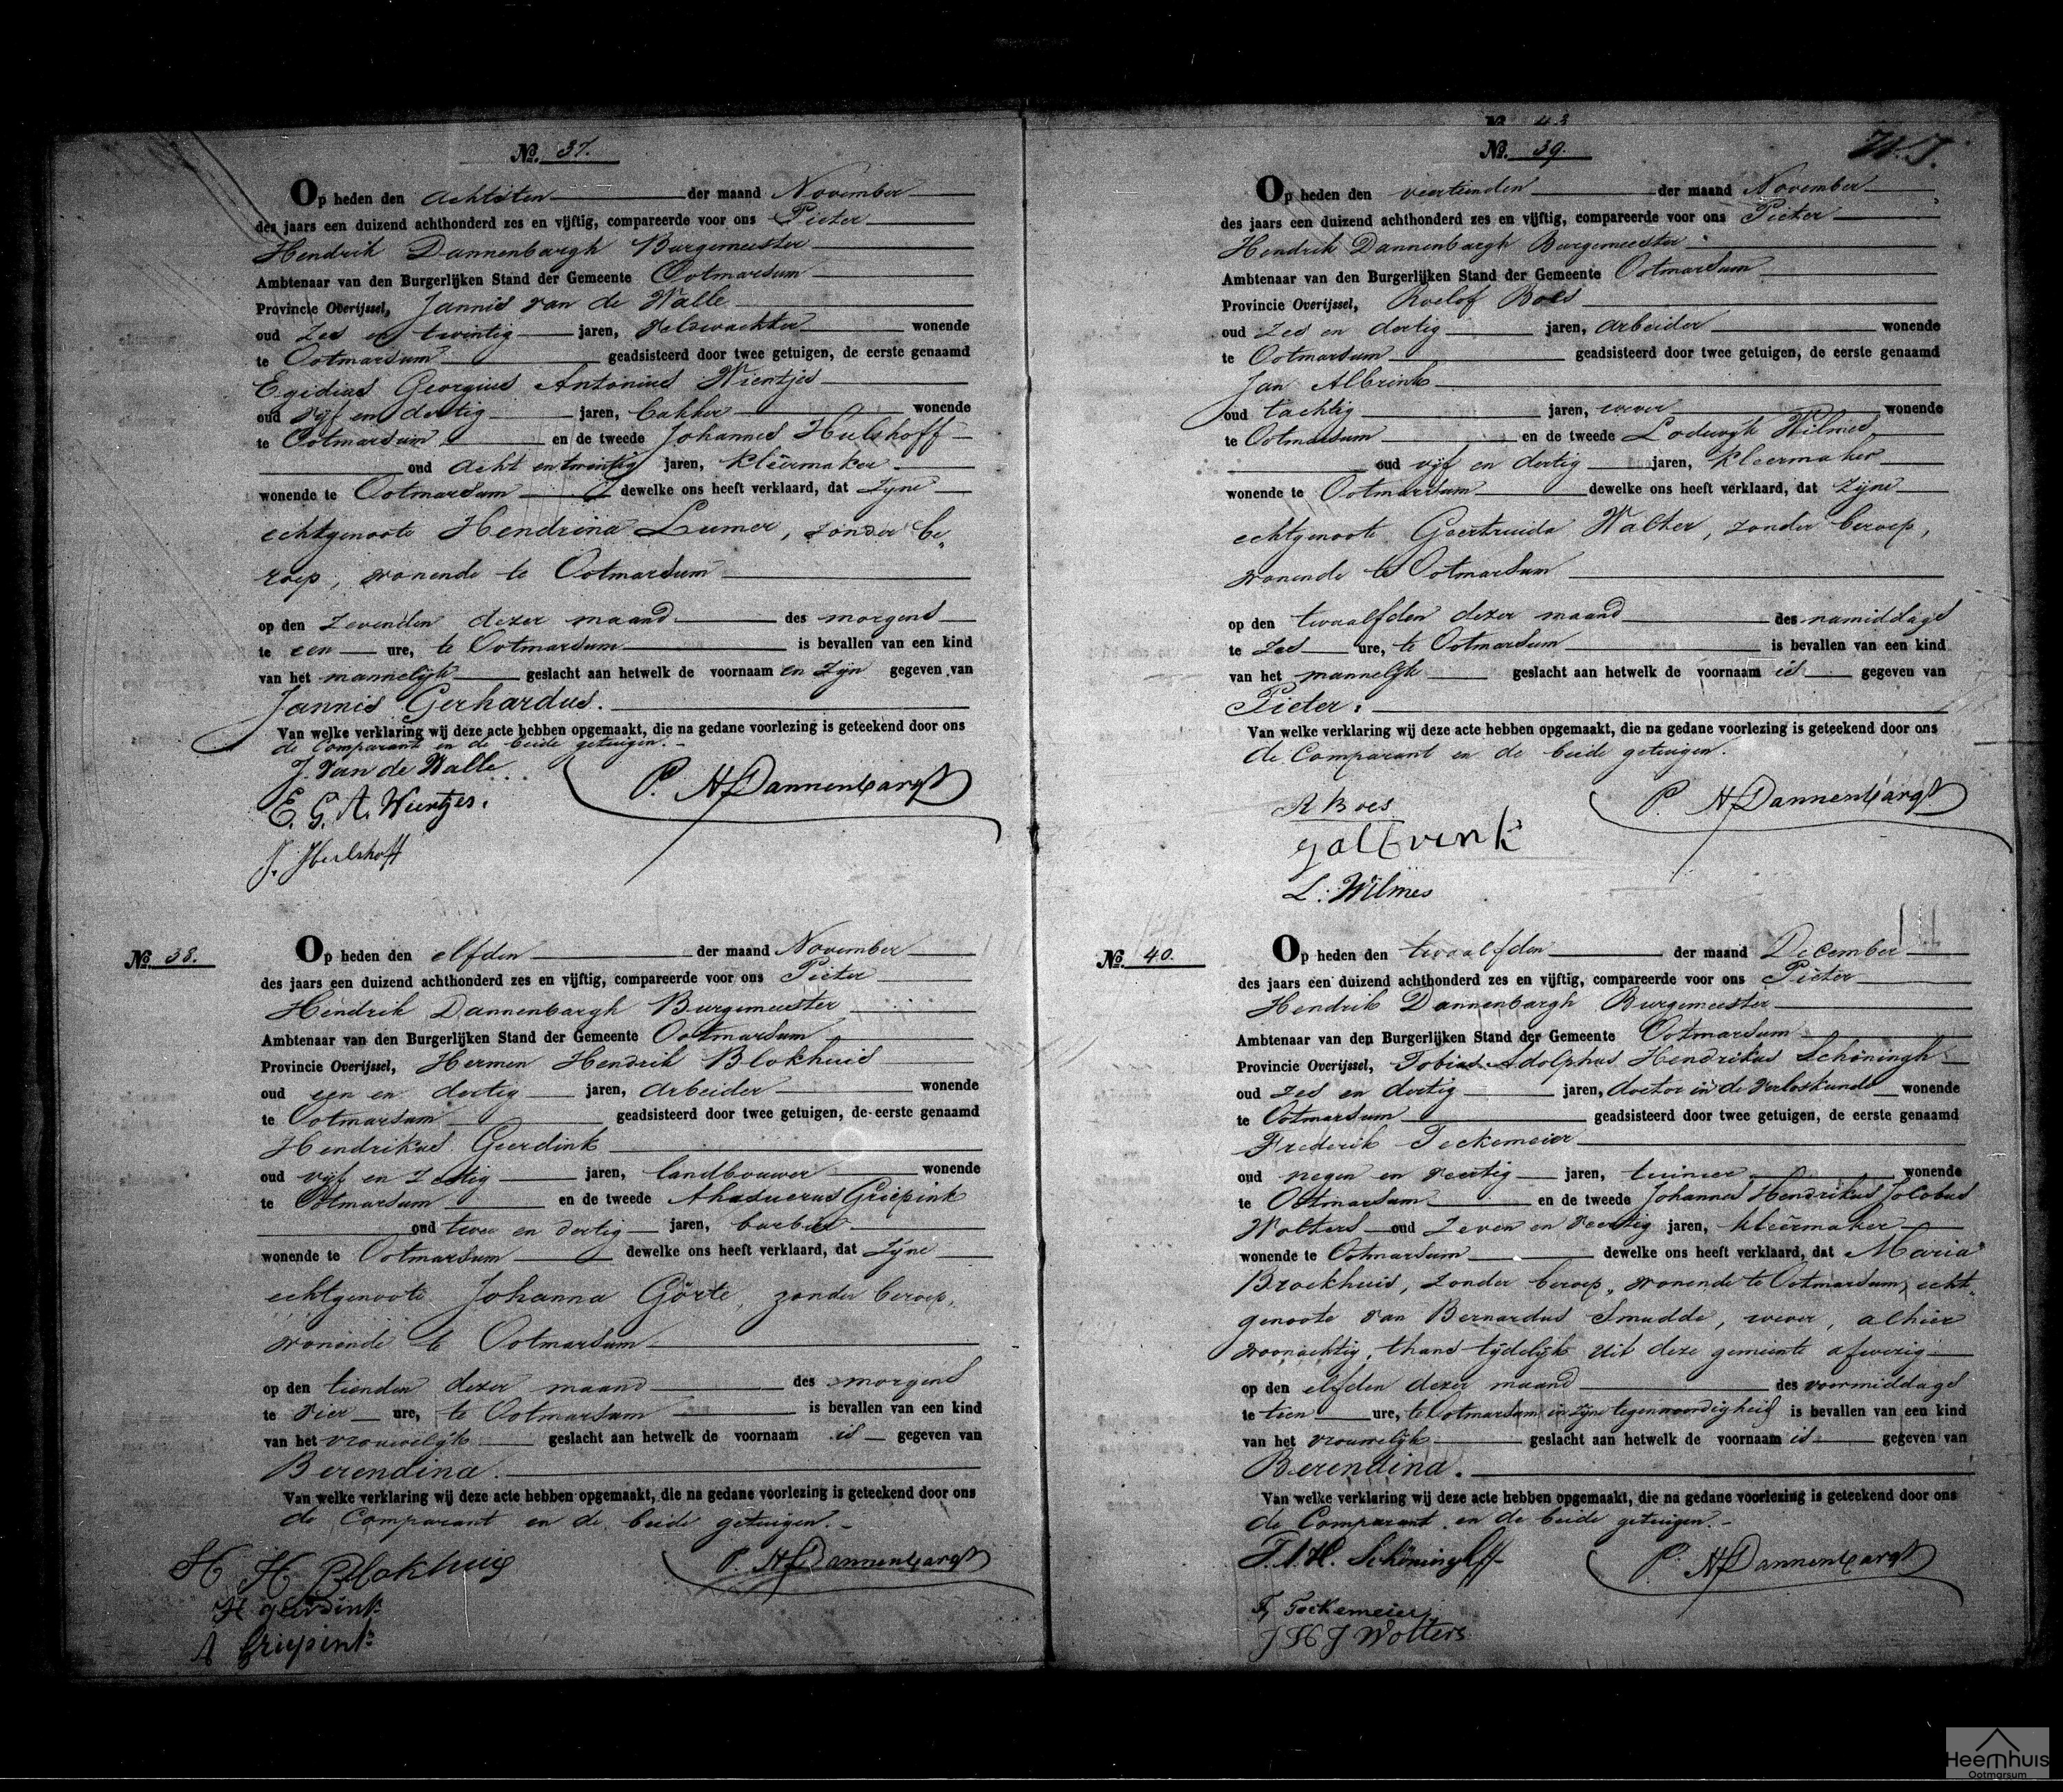 No. 37.
Op heden den achtsten der maand November
des jaars een duizend achthonderd zes en vijftig, compareerde voor ons Pieter
Hendrik Dannenbargh Burgemeester
Ambtenaar van den Burgerlijken Stand der Gemeente Ootmarsum
Provincie Overijssel, Jannis van de Walle
oud zes en twintig jaren, veldwachter wonende
te Ootmarsum geadsisteerd door twee getuigen, de eerste genaamd
Egidius Georgius Antonius Wientjes
oud vijf en dertig jaren, bakker wonende
te Ootmarsum en de tweede Johannes Hulshoff
oud acht en twintig jaren, kleermaker
wonende te Ootmarsum dewelke ons heeft verklaard, dat zijne
echtgenoote Hendrina Lumer, zonder be„
roep, wonende te Ootmarsum
op den zevenden dezer maand des morgens
te een ure, te Ootmarsum is bevallen van een kind
van het mannelijk geslacht aan hetwelk de voornaam en zijn gegeven van
Jannis Gerhardus.
Van welke verklaring wij deze acte hebben opgemaakt, die na gedane voorlezing is geteekend door ons
de Comparant en de beide getuigen.
J. van de Walle
P. H Dannenbargh
E. G. A. Wientjes.
J. Hulshoff
No. 38.
Op heden den elfden der maand November
des jaars een duizend achthonderd zes en vijftig, compareerde voor ons Pieter
Hendrik Dannenbargh Burgemeester
Ambtenaar van den Burgerlijken Stand der Gemeente Ootmarsum
Provincie Overijssel, Hermen Hendrik Blokhuis
oud een en dertig jaren, arbeider wonende
te Ootmarsum geadsisteerd door twee getuigen, de eerste genaamd
Hendrikus Geerdink
oud vijf en zestig jaren, landbouwer wonende
te Ootmarsum en de tweede Ahasuerus Griepink
oud twee en dertig jaren, barbier
wonende te Ootmarsum dewelke ons heeft verklaard, dat zijne
echtgenoote Johanna Görte, zonder beroep,
wonende te Ootmarsum
op den tienden dezer maand des morgens
te vier ure, te Ootmarsum is bevallen van een kind
van het vrouwelijk geslacht aan hetwelk de voornaam is gegeven van
Berendina.
Van welke verklaring wij deze acte hebben opgemaakt, die na gedane voorlezing is geteekend door ons
de Comparant en de beide getuigen.
H H Blokhuis
P. H Dannenbargh
H geerdink
A Griepink
No 43
No. 39.
Op heden den veertienden der maand November
des jaars een duizend achthonderd zes en vijftig, compareerde voor ons Pieter
Hendrik Dannenbargh Burgemeester
Ambtenaar van den Burgerlijken Stand der Gemeente Ootmarsum
Provincie Overijssel, Roelof Boes
oud zes en dertig jaren, arbeider wonende
te Ootmarsum geadsisteerd door twee getuigen, de eerste genaamd
Jan Albrink
oud tachtig jaren, wever wonende
te Ootmarsum en de tweede Lodwigh Wilmes
oud vijf en dertig jaren, kleermaker
wonende te Ootmarsum dewelke ons heeft verklaard, dat zijne
echtgenoote Geertruida Walter, zonder beroep,
wonende te Ootmarsum
op den twaalfden dezer maand des namiddags
te zes ure, te Ootmarsum is bevallen van een kind
van het mannelijk geslacht aan hetwelk de voornaam is gegeven van
Pieter.
Van welke verklaring wij deze acte hebben opgemaakt, die na gedane voorlezing is geteekend door ons
de Comparant en de beide getuigen.
R Boes
P. H Dannenbargh
J albrink
L. Wilmes
No. 40.
Op heden den twaalfden der maand December
des jaars een duizend achthonderd zes en vijftig, compareerde voor ons Pieter
Hendrik Dannenbargh Burgemeester
Ambtenaar van den Burgerlijken Stand der Gemeente Ootmarsum
Provincie Overijssel, Tobias Adolphus Hendrikus Schöningh
oud zes en dertig jaren, doctor in de verloskunde wonende
te Ootmarsum geadsisteerd door twee getuigen, de eerste genaamd
Frederik Teckemeier
oud negen en veertig jaren, tuinier wonende
te Ootmarsum en de tweede Johannes Hendrikus Jacobus
Wolters oud zeven en veertig jaren, kleermaker
wonende te Ootmarsum dewelke ons heeft verklaard, dat Maria
Broekhuis, zonder beroep, wonende te Ootmarsum, echt„
genoote van Bernardus Smudde, wever, alhier
woonachtig, thans tijdelijk uit deze gemeente afwezig
op den elfden dezer maand des voormiddags
te tien ure, te Ootmarsum in zijne tegenwoordigheid is bevallen van een kind
van het vrouwelijk geslacht aan hetwelk de voornaam is gegeven van
Berendina.
Van welke verklaring wij deze acte hebben opgemaakt, die na gedane voorlezing is geteekend door ons
de Comparant en de beide getuigen.
T. A. H. Schöningh
P. H Dannenbargh
F, Teckemeier
J H J Wolters
Heemhuis
Ootmarsum